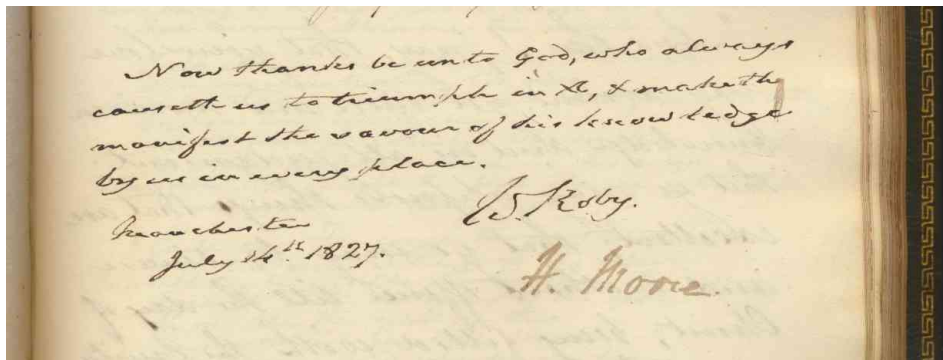 Now thanks be unto God, who always
causeth us to triumph in Xt, & maketh
manifest the savour of his knowledge
by us in every place.
W. Roby.
Manchester
July 14th 1827.
H. Moore.